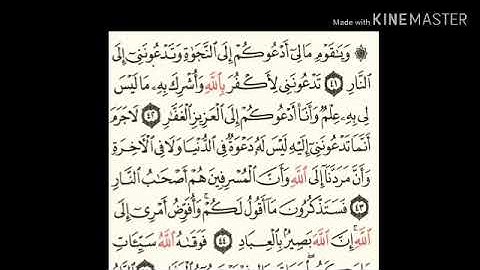 Made with KINEMASTER
۞ وَيَٰقَوْمِ مَا لِيٓ أَدْعُوكُمْ إِلَى ٱلنَّجَوٰةِ وَتَدْعُونَنِيٓ إِلَى
ٱلنَّارِ ٤١ تَدْعُونَنِي لِأَكْفُرَ بِٱللَّهِ وَأُشْرِكَ بِهِۦ مَا لَيْسَ
لِي بِهِۦ عِلْمٌ وَأَنَا۠ أَدْعُوكُمْ إِلَى ٱلْعَزِيزِ ٱلْغَفَّٰرِ ٤٢ لَا جَرَمَ
أَنَّمَا تَدْعُونَنِيٓ إِلَيْهِ لَيْسَ لَهُۥ دَعْوَةٌ فِي ٱلدُّنْيَا وَلَا فِي ٱلْأٓخِرَةِ
وَأَنَّ مَرَدَّنَآ إِلَى ٱللَّهِ وَأَنَّ ٱلْمُسْرِفِينَ هُمْ أَصْحَٰبُ ٱلنَّارِ
٤٣ فَسَتَذْكُرُونَ مَآ أَقُولُ لَكُمْ وَأُفَوِّضُ أَمْرِيٓ إِلَى
ٱللَّهِ إِنَّ ٱللَّهَ بَصِيرٌۢ بِٱلْعِبَادِ ٤٤ فَوَقَىٰهُ ٱللَّهُ سَيِّـَٔاتِ